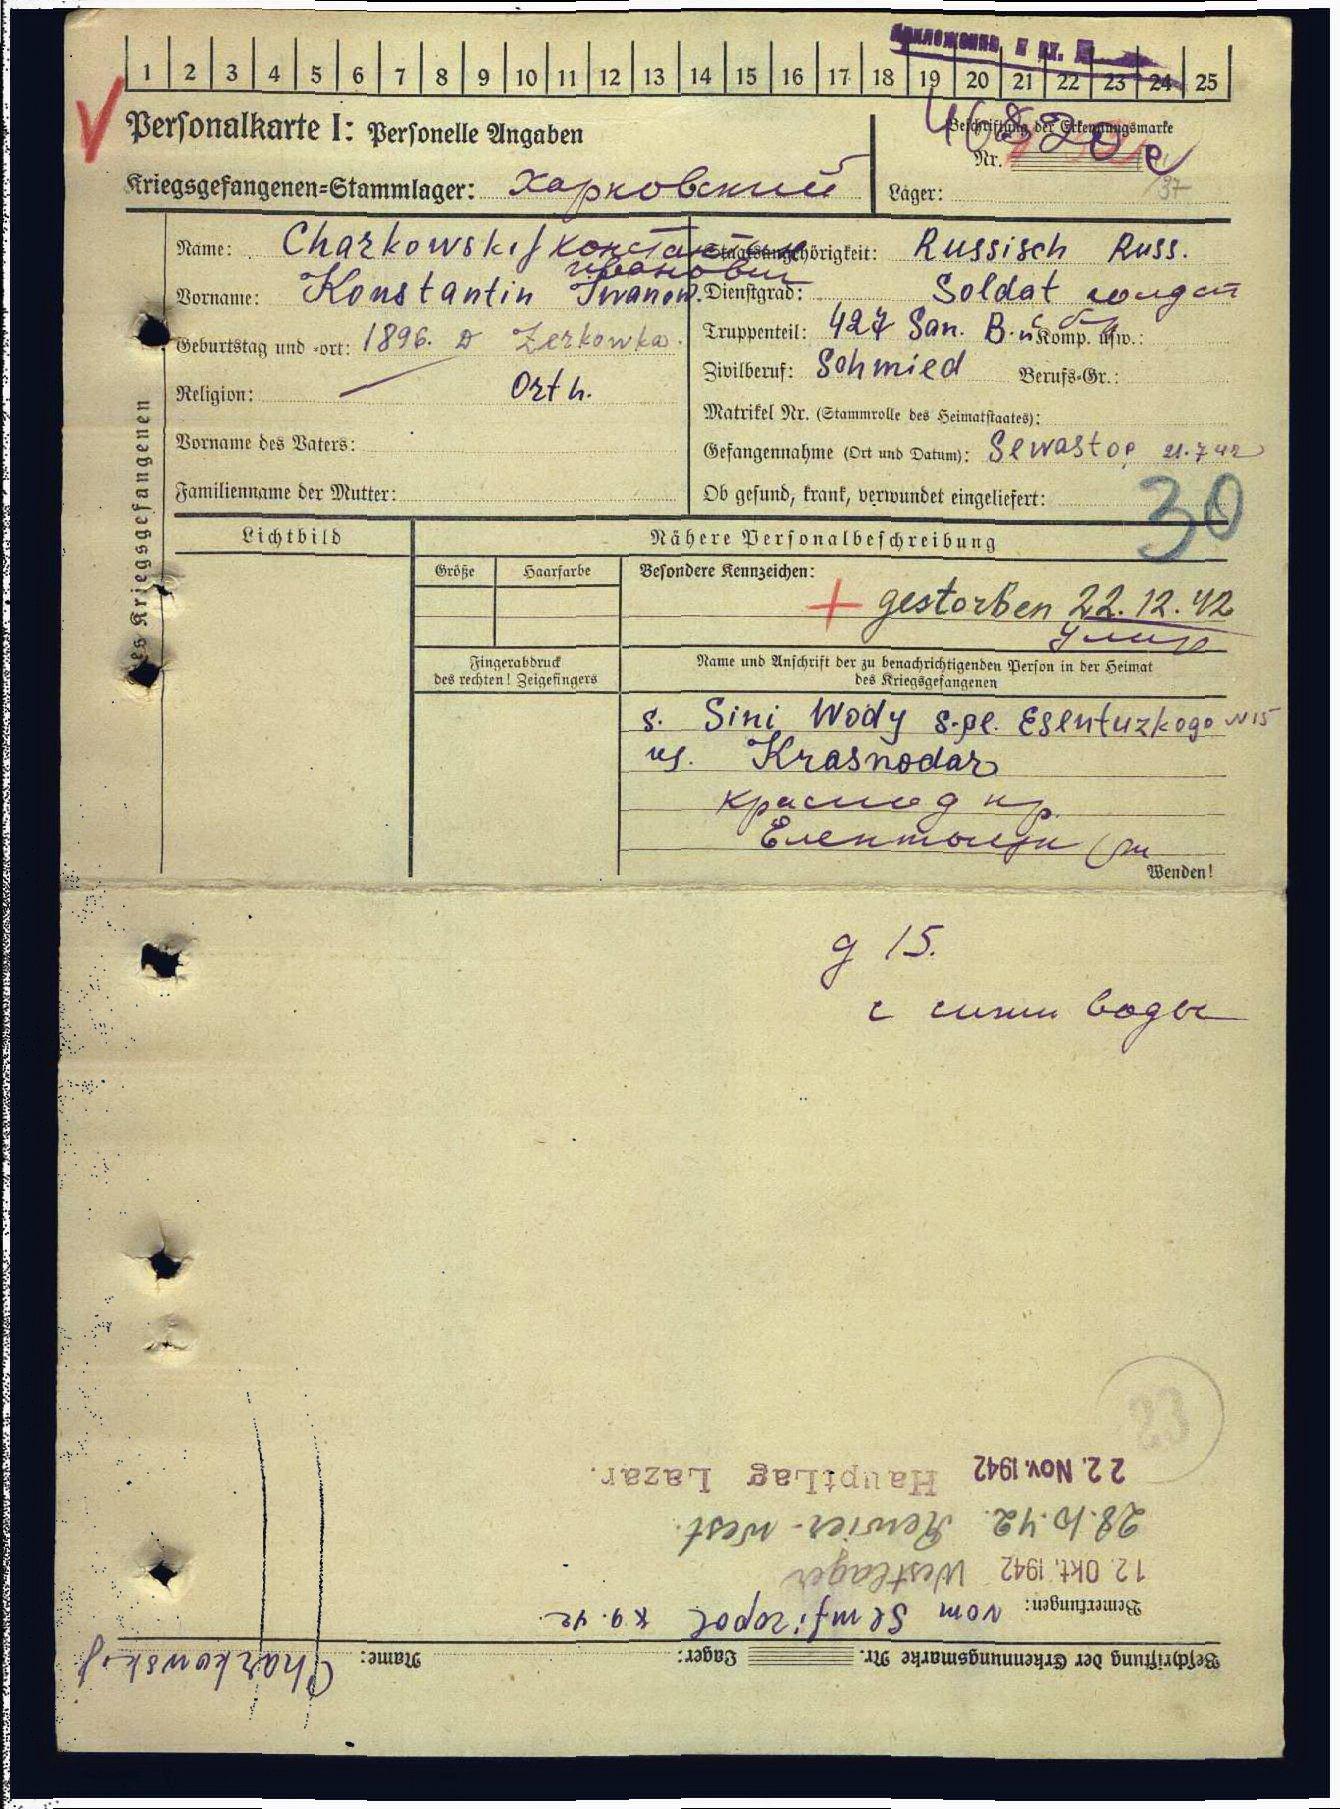 1 2 3 4 5 6 7 8 9 10 11 12 13 14 15 16 17 18 19 20 21 22 23 24 25
Personalkarte I: Personelle Angaben
Beschriftung der Erkennungsmarke
Nr.
Kriegsgefangenen-Stammlager: Харковский
Lager:
37
des Kriegsgefangenen
Name: Charkowskij Константин
Иванович
Vorname: Konstantin Iwanow.
Geburtstag und -ort: 1896. D Zerkowka.
Religion: Orth.
Vorname des Vaters:
Familienname der Mutter:
Staatsangehörigkeit: Russisch Russ.
Dienstgrad: Soldat солдат
Truppenteil: 427 San. B. Komp. usw.:
Zivilberuf: Schmied Berufs-Gr.:
Matrikel Nr. (Stammrolle des Heimatstaates):
Gefangennahme (Ort und Datum): Sewastop. 21.7 42
Ob gesund, krank, verwundet eingeliefert:
30
Lichtbild
Nähere Personalbeschreibung
Größe
Haarfarbe
Besondere Kennzeichen:
+ gestorben 22.12.42
умир
Fingerabdruck
des rechten! Zeigefingers
Name und Anschrift der zu benachrichtigenden Person in der Heimat
des Kriegsgefangenen
s. Sini Wody s.pl. Esentuzkogo N15
Krasnodar
краснод кр.
Wenden!
д 15.
с сини воды
23
Beschriftung der Erkennungsmarke Nr. Lager: Name: Charkowskij
Bemerkungen: vom Semfiropol 9.42.
12. Okt. 1942 Westlager
28.10.42. Revier-West.
22. Nov. 1942 HauptLag Lazar.